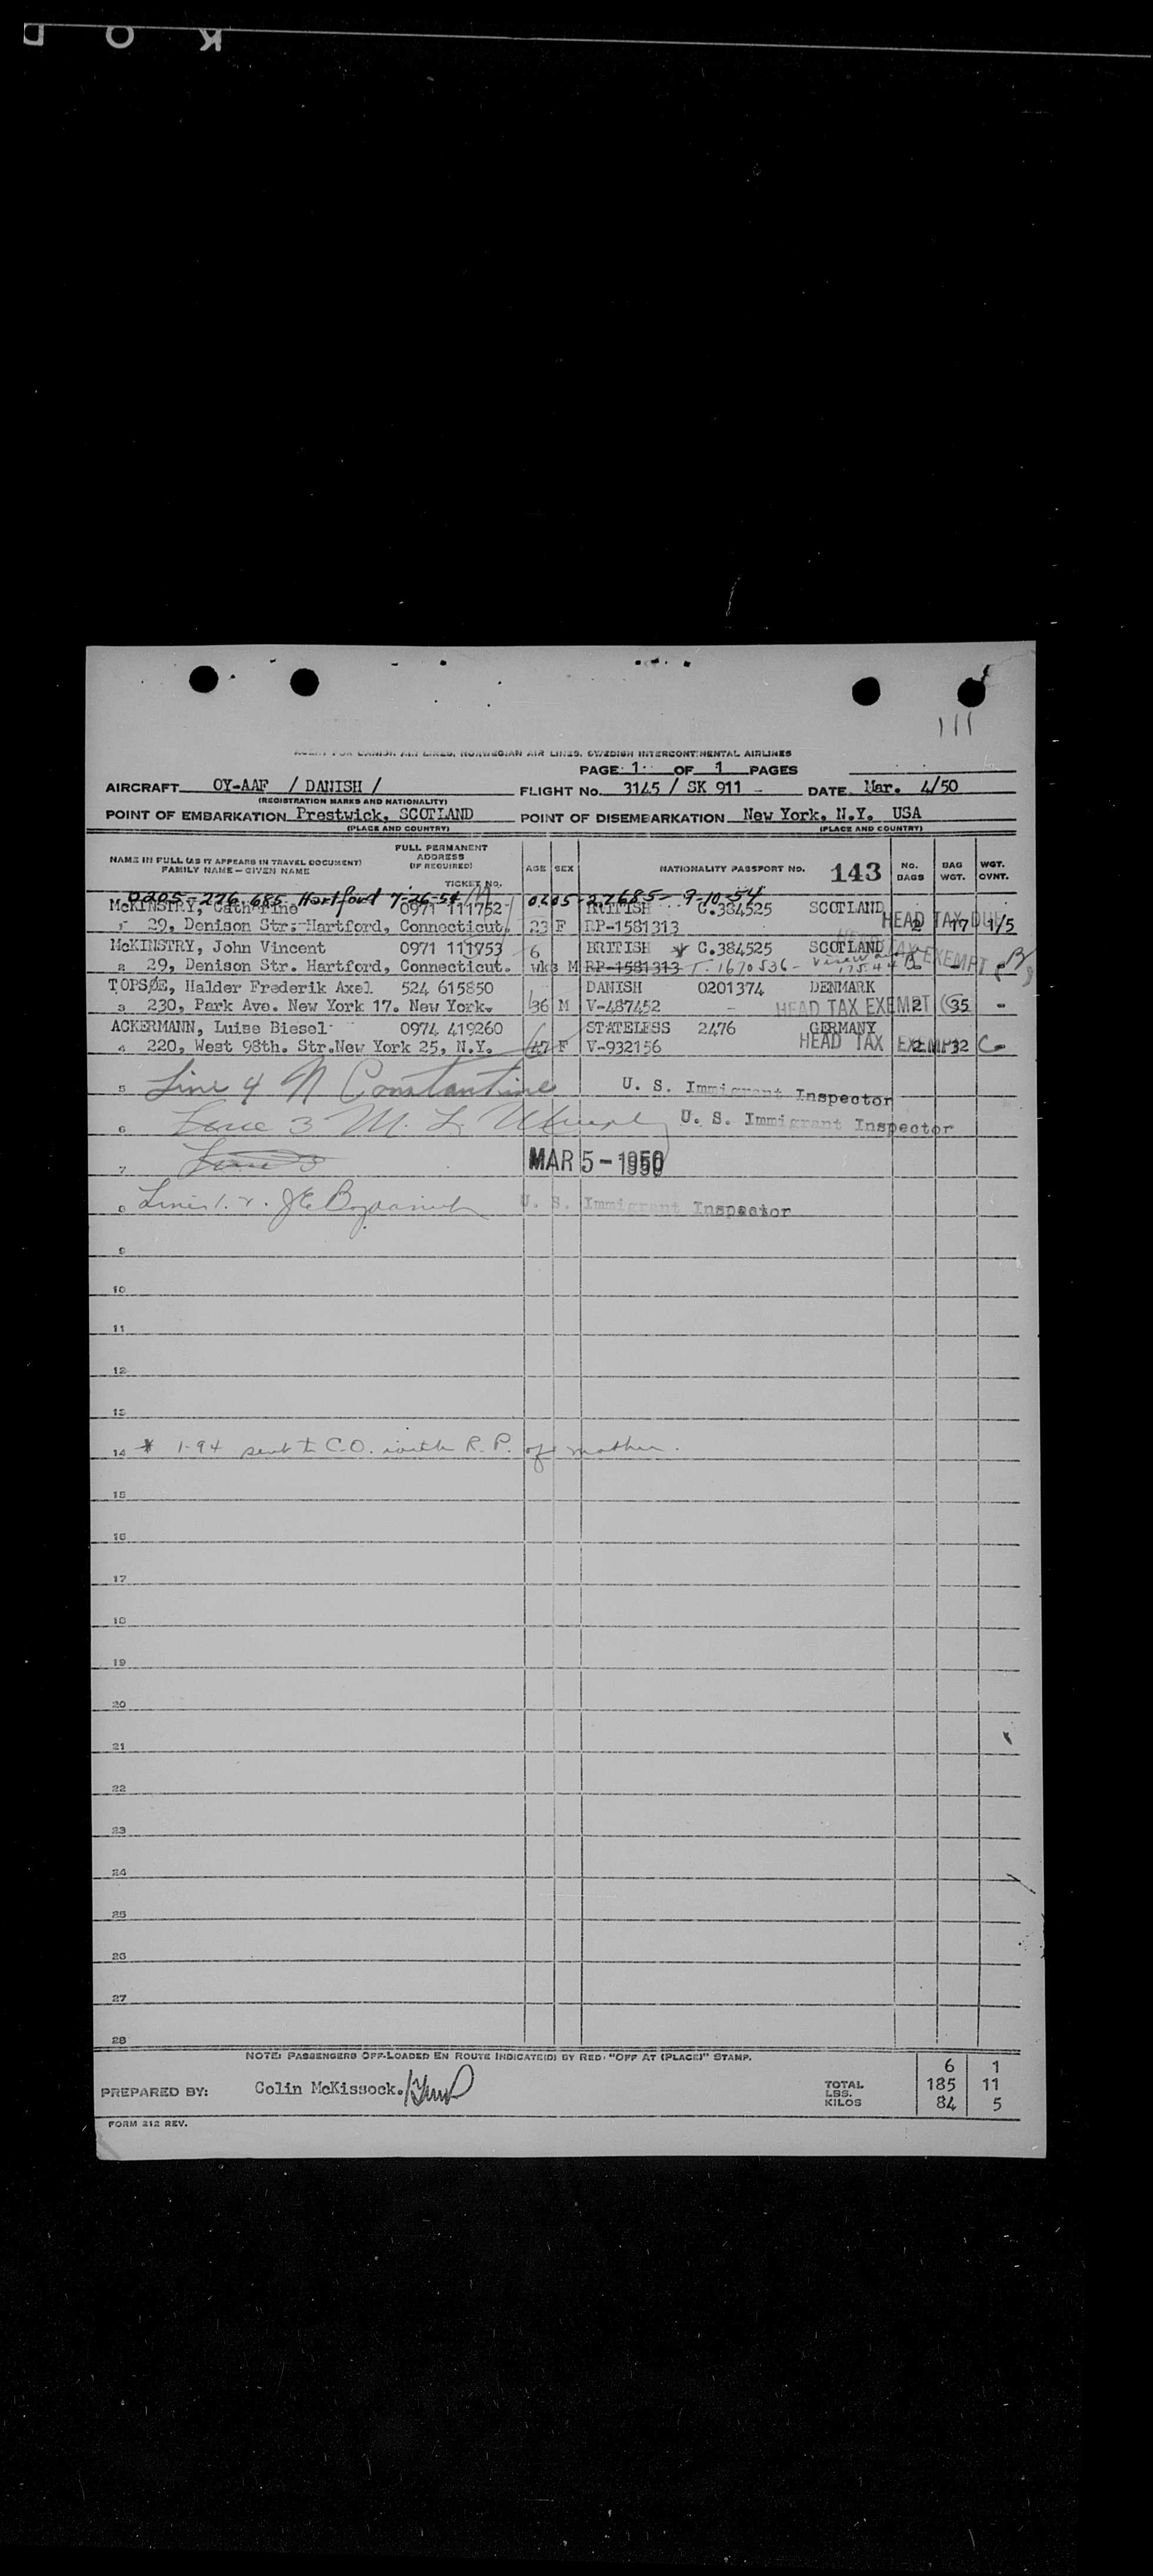 K O D
AGENT FOR DANISH AIR LINES, NORWEGIAN AIR LINES, SWEDISH INTERCONTINENTAL AIRLINES
111
PAGE 1 OF 1 PAGES
AIRCRAFT OY-AAF / DANISH / FLIGHT No. 3145 / SK 911 - DATE Mar. 4/50
(REGISTRATION MARKS AND NATIONALITY)
POINT OF EMBARKATION Prestwick, SCOTLAND POINT OF DISEMBARKATION New York, N.Y. USA
(PLACE AND COUNTRY) (PLACE AND COUNTRY)
NAME IN FULL (AS IT APPEARS IN TRAVEL DOCUMENT) FAMILY NAME—GIVEN NAME FULL PERMANENT ADDRESS (IF REQUIRED) TICKET NO. AGE SEX NATIONALITY PASSPORT NO. 143 NO. BAGS BAG WGT. WGT. OVNT.
0205-276 685 Hartford 7-26-54 0205-27685- 9-10-54
McKINSTRY, Catharine 0971 111752 BRITISH C.384525 SCOTLAND
1 29, Denison Str. Hartford, Connecticut. 23 F RP-1581313 HEAD TAX DUE 2 17 1/5
McKINSTRY, John Vincent 0971 111753 6 BRITISH * C.384525 SCOTLAND HEAD TAX EXEMPT
2 29, Denison Str. Hartford, Connecticut. wks M RP-1581313 T. 1670536-
TOPSØE, Halder Frederik Axel 524 615850 DANISH 0201374 DENMARK
3 230, Park Ave. New York 17. New York. 36 M V-487452 - HEAD TAX EXEMPT 2 35 -
ACKERMANN, Luise Biesel 0974 419260 STATELESS 2476 GERMANY
4 220, West 98th. Str.New York 25, N.Y. 47 F V-932156 HEAD TAX EXEMPT 2 32 -
5 Line 4 N Constantine U. S. Immigrant Inspector
6 Line 3 M. L. U. S. Immigrant Inspector
7 MAR 5 - 1950
8 Lines 1. 2. J E U. S. Immigrant Inspector
9
10
11
12
13
14 * 1-94 sent to C.O. with R.P. of mother.
15
16
17
18
19
20
21
22
23
24
25
26
27
28
NOTE: PASSENGERS OFF-LOADED EN ROUTE INDICATE(D) BY RED "OFF AT (PLACE)" STAMP.
6 1
PREPARED BY: Colin McKissock. TOTAL LBS. 185 11
KILOS 84 5
FORM 212 REV.